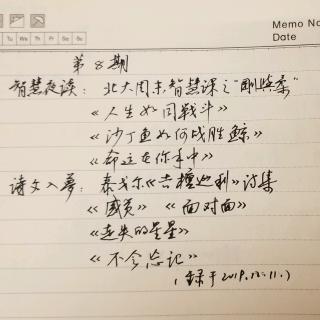 Memo No
Date
Tu We Th Fr Sa Su
第8期
智慧夜读：北大周末智慧课之“刚与柔”
《人生如同战斗》
《沙丁鱼如何战胜鲸》
《命运在你手中》
诗文入夢：泰戈尔《吉檀迦利》诗集
《盛夏》《面对面》
《走失的星星》
《不会忘记》
（录于2019.12.11.）